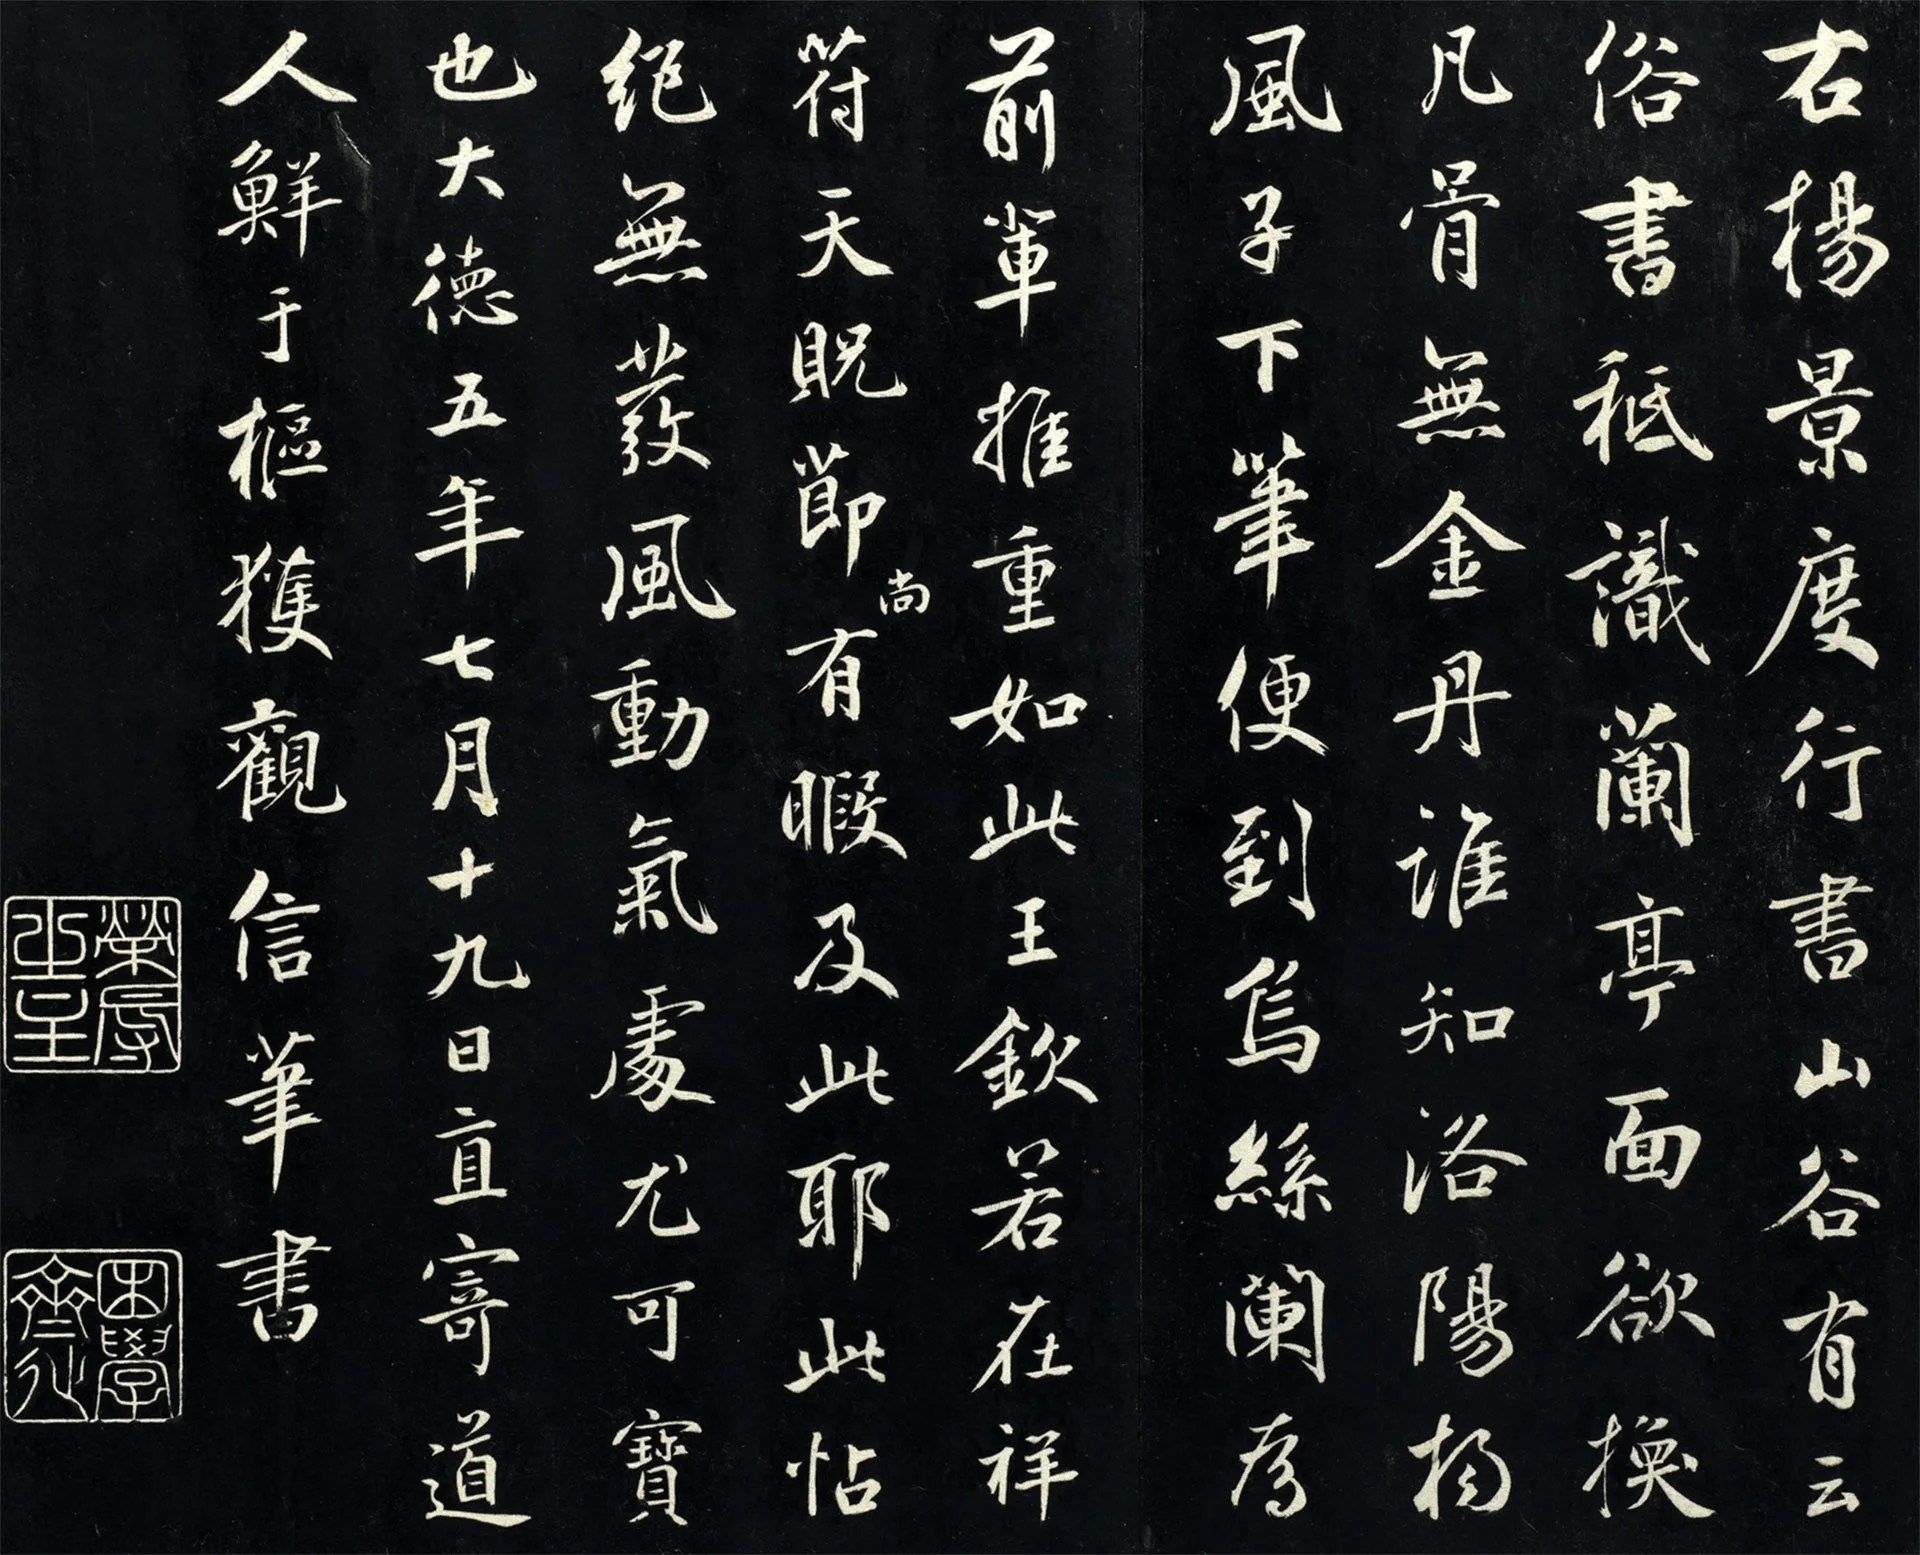 右楊景度行書山谷有云
俗書秖識蘭亭面欲換
凡骨無金丹誰知洛陽楊
風子下筆便到烏絲闌爲
前輩推重如此王欽若在祥
符天貺節尚有暇及此耶此帖
絕無發風動氣處尤可寶
也大德五年七月十九日直寄道
人鮮于樞獲觀信筆書
困學齋